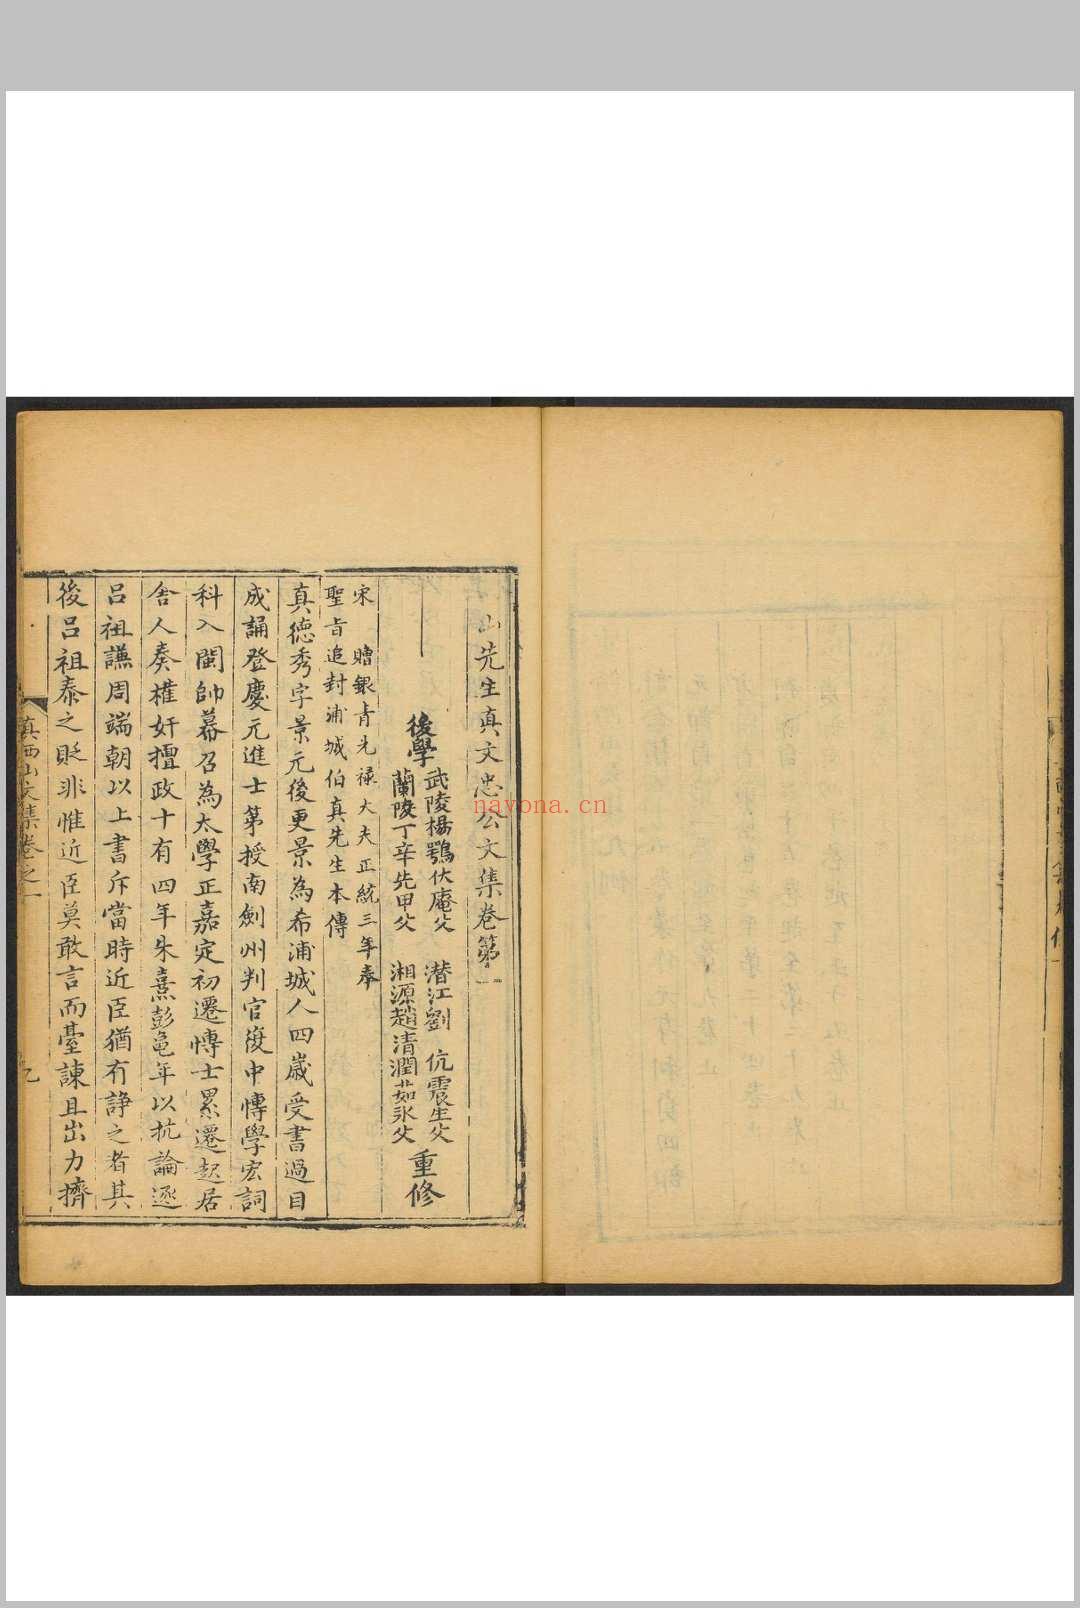 山先生真文忠公文集卷第一
後學
武陵楊鶚伏庵父
潜江劉 伉震生父
蘭陵丁辛先甲父
湘源趙清潤茹永父
重修
宋 贈銀青光祿大夫正統三年奉
聖旨追封浦城伯真先生本傳
真德秀字景元後更景為希浦城人四歲受書過目
成誦登慶元進士第授南劍州判官復中博學宏詞
科入閩帥幕召為太學正嘉定初遷博士累遷起居
舍人奏權奸擅政十有四年朱熹彭龜年以抗論逐
呂祖謙周端朝以上書斥當時近臣猶有諍之者其
後呂祖泰之貶非惟近臣莫敢言而臺諫且出力擠
真西山文集卷之一
navona.cn